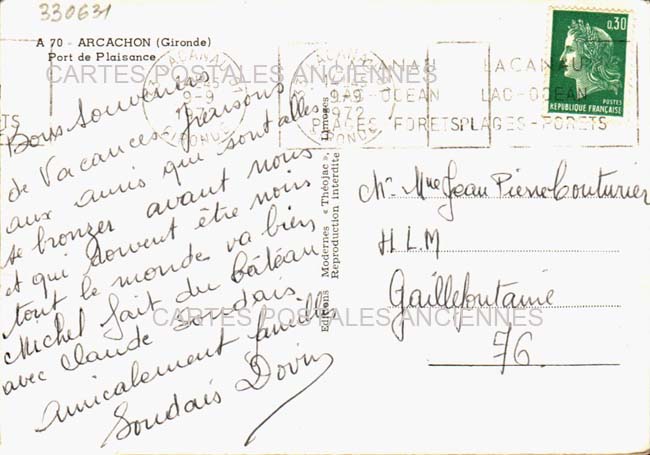 330631
A 70 - ARCACHON (Gironde)
Port de Plaisance
CARTES POSTALES ANCIENNES
Bons Souvenirs
de Vacances. Faisons
aux amis qui sont allés
se bronzer avant nous
et qui doivent être noirs
tout le monde va bien
Michel fait du bâteau
avec Claude Soudais
Amicalement famille
Soudais
Editions Modernes « Théojac », Limoges
Reproduction interdite
LACANAU
9-9
1972
GIRONDE
LACANAU LACANAU
OCEAN LAC-OCEAN
PLAGES-FORETS PLAGES-FORETS
0,30
POSTES
REPUBLIQUE FRANÇAISE
Mr. Mme Jean Pierre Couturier
H L M
Gaillefontaine
76
CARTES POSTALES ANCIENNES